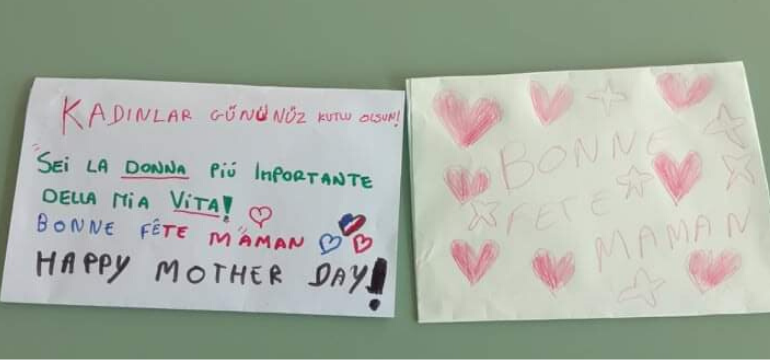 KADINLAR GÜNÜNÜZ KUTLU OLSUN!
"SEI LA DONNA PIÚ INPORTANTE
DELLA MIA VITA!
BONNE FÊTE MAMAN
HAPPY MOTHER DAY!
BONNE
FETE
MAMAN